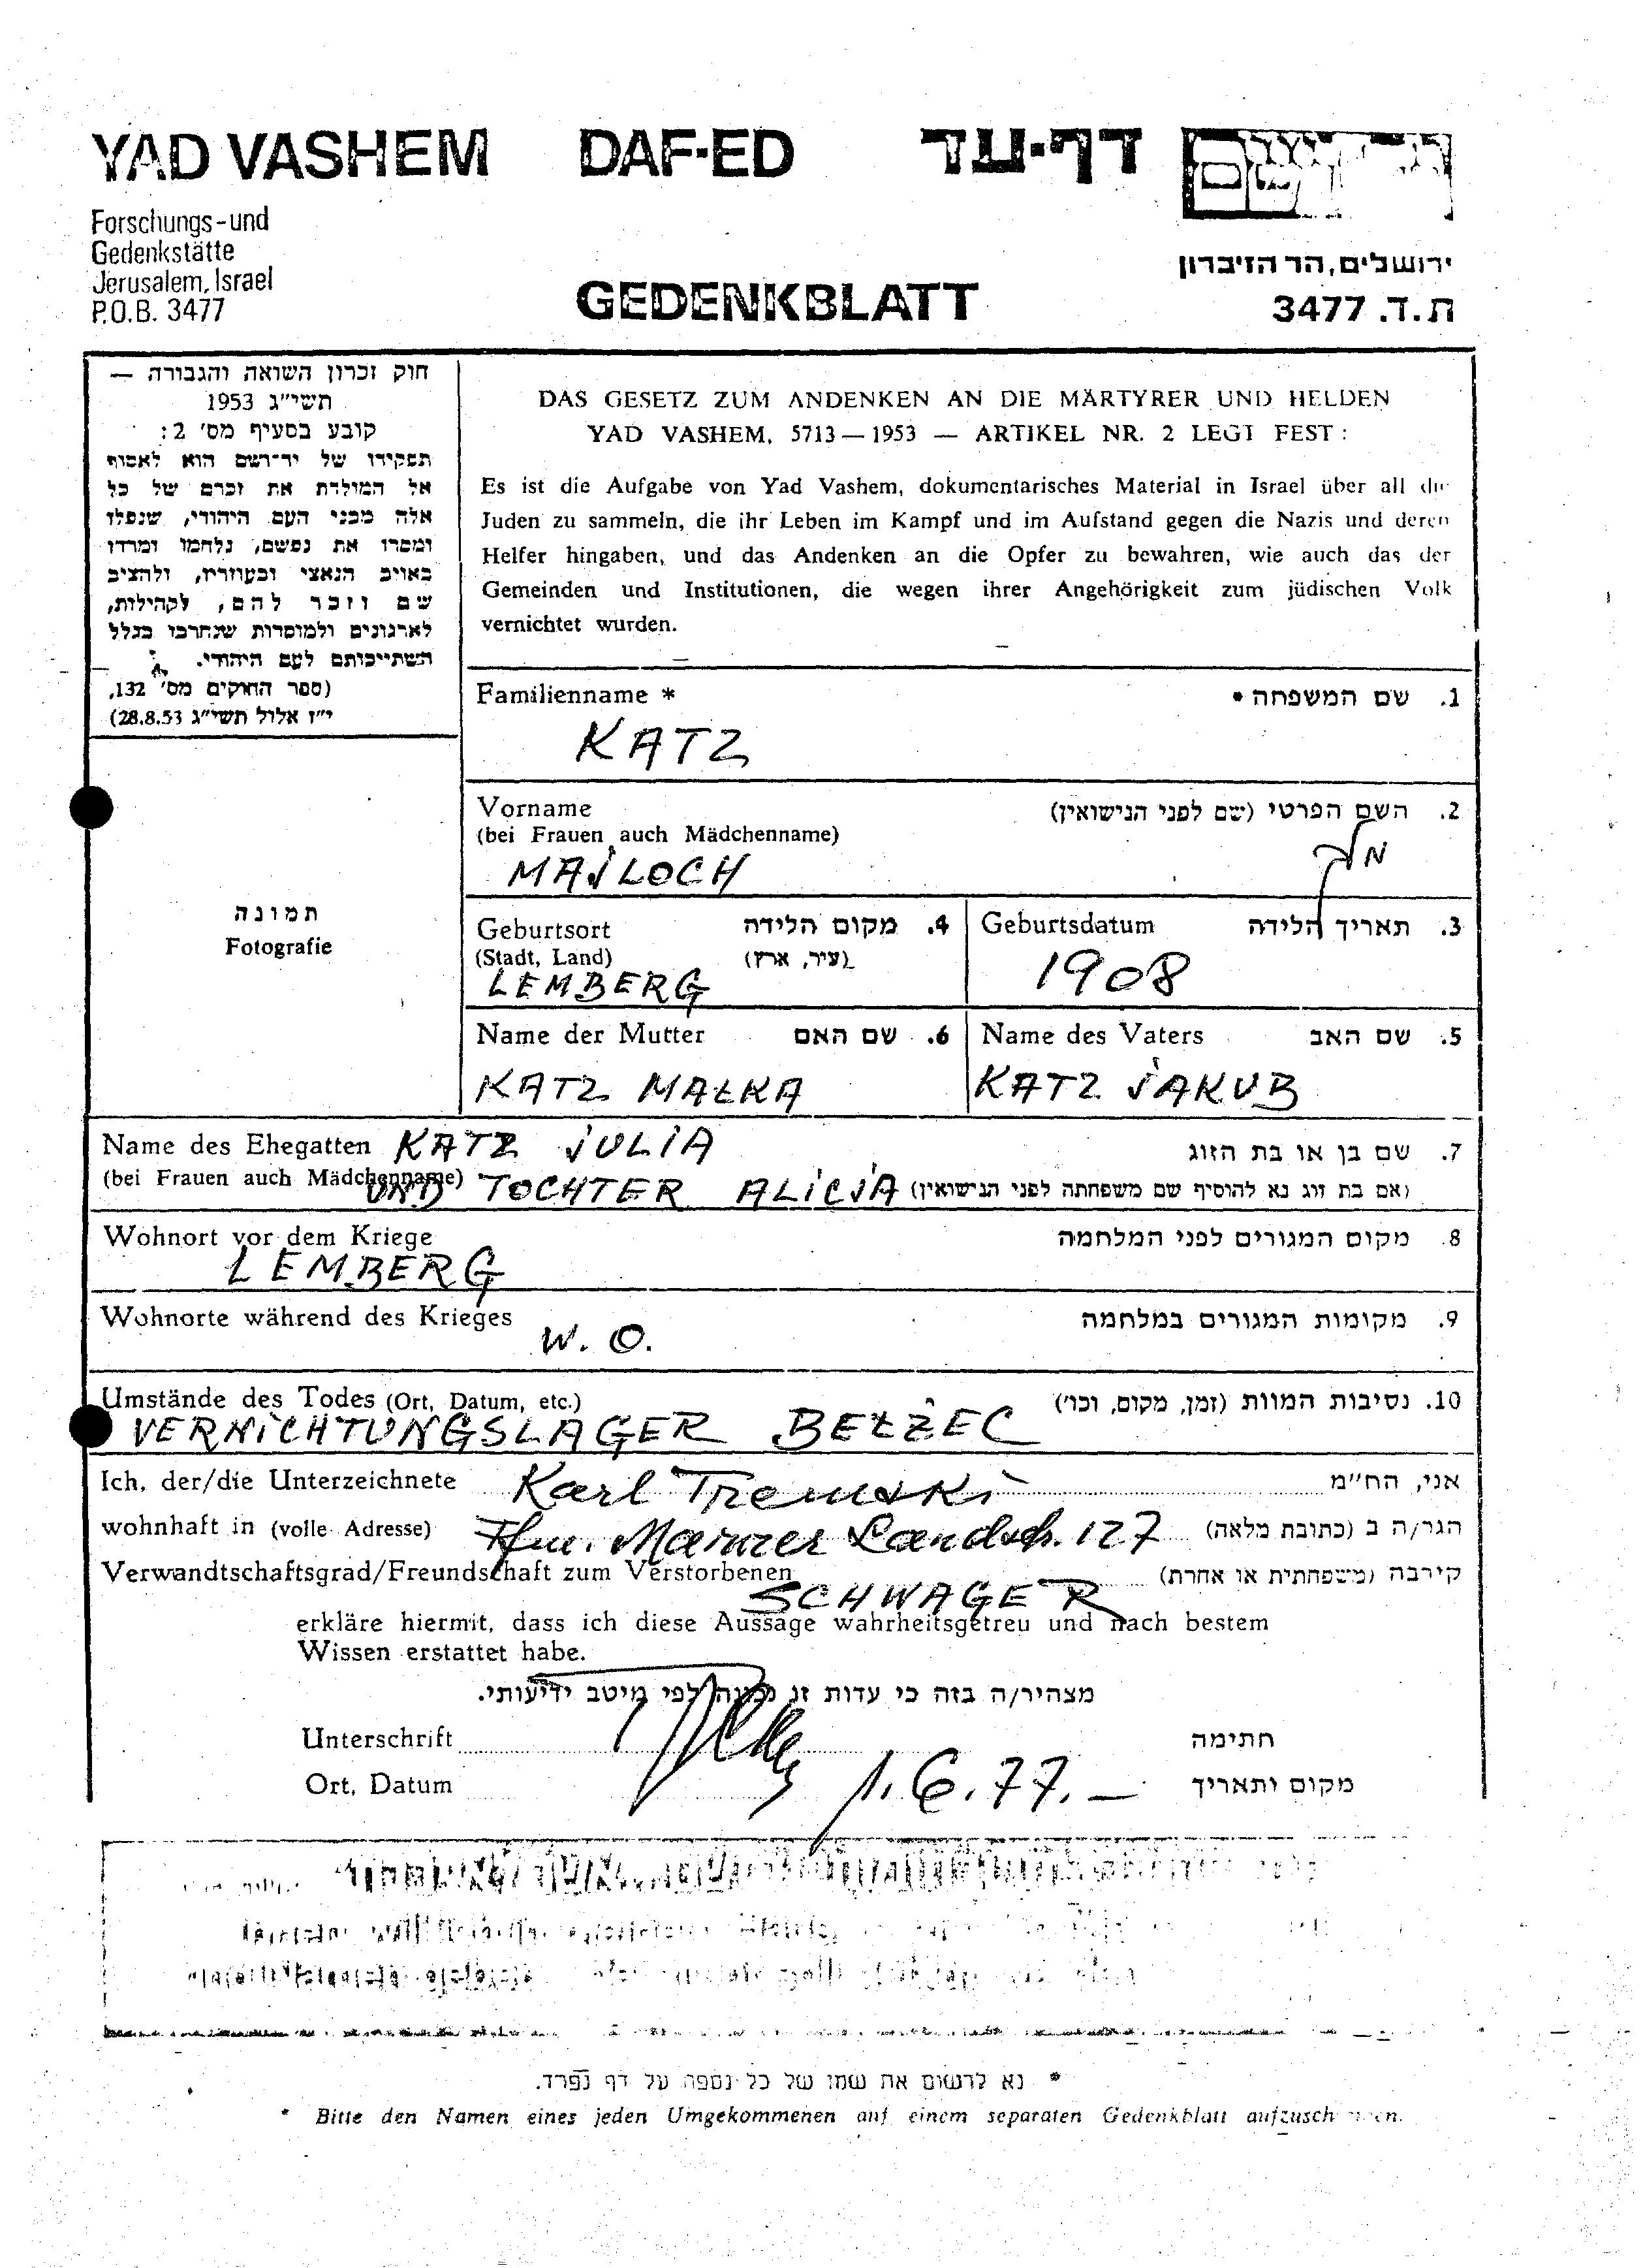 YAD VASHEM DAF-ED דף-עד
Forschungs-und
Gedenkstätte
Jerusalem, Israel
P.O.B. 3477
GEDENKBLATT
ירושלים, הר הזיכרון
ת.ד. 3477
חוק זכרון השואה והגבורה —
תשי"ג 1953
קובע בסעיף מס' 2:
תפקידו של יד-ושם הוא לאסוף
אל המולדת את זכרם של כל
אלה מבני העם היהודי, שנפלו
ומסרו את נפשם, נלחמו ומרדו
באויב הנאצי ובעוזריו, ולהציב
שם וזכר להם, לקהילות,
לארגונים ולמוסדות שנחרבו בגלל
השתייכותם לעם היהודי.
(ספר החוקים מס' 132,
י"ז אלול תשי"ג 28.8.53)
DAS GESETZ ZUM ANDENKEN AN DIE MÄRTYRER UND HELDEN
YAD VASHEM, 5713—1953 — ARTIKEL NR. 2 LEGT FEST:
Es ist die Aufgabe von Yad Vashem, dokumentarisches Material in Israel über all die
Juden zu sammeln, die ihr Leben im Kampf und im Aufstand gegen die Nazis und deren
Helfer hingaben, und das Andenken an die Opfer zu bewahren, wie auch das der
Gemeinden und Institutionen, die wegen ihrer Angehörigkeit zum jüdischen Volk
vernichtet wurden.
Familienname * 1. שם המשפחה *
KATZ
Vorname 2. השם הפרטי (שם לפני הנישואין)
(bei Frauen auch Mädchenname)
MAJLOCH
תמונה
Fotografie
Geburtsort 4. מקום הלידה
(Stadt, Land) (עיר, ארץ)
LEMBERG
Geburtsdatum 3. תאריך הלידה
1908
Name der Mutter 6. שם האם
KATZ MAŁKA
Name des Vaters 5. שם האב
KATZ JAKUB
Name des Ehegatten KATZ JULIA 7. שם בן או בת הזוג
(bei Frauen auch Mädchenname) UND TOCHTER ALICJA (אם בת זוג נא להוסיף שם משפחתה לפני הנישואין)
Wohnort vor dem Kriege 8. מקום המגורים לפני המלחמה
LEMBERG
Wohnorte während des Krieges 9. מקומות המגורים במלחמה
W. O.
Umstände des Todes (Ort, Datum, etc.) 10. נסיבות המוות (זמן, מקום, וכו')
VERNICHTUNGSLAGER BEŁŻEC
Ich, der/die Unterzeichnete Karl אני, הח"מ
wohnhaft in (volle Adresse) Ffm. Mainzer Landstr. 127 הגר/ה ב (כתובת מלאה)
Verwandtschaftsgrad/Freundschaft zum Verstorbenen SCHWAGER קירבה (משפחתית או אחרת)
erkläre hiermit, dass ich diese Aussage wahrheitsgetreu und nach bestem
Wissen erstattet habe.
מצהיר/ה בזה כי עדות זו נכונה לפי מיטב ידיעותי.
Unterschrift חתימה
Ort, Datum 1.6.77.— מקום ותאריך
* נא לרשום את שמו של כל נספה על דף נפרד.
* Bitte den Namen eines jeden Umgekommenen auf einem separaten Gedenkblatt